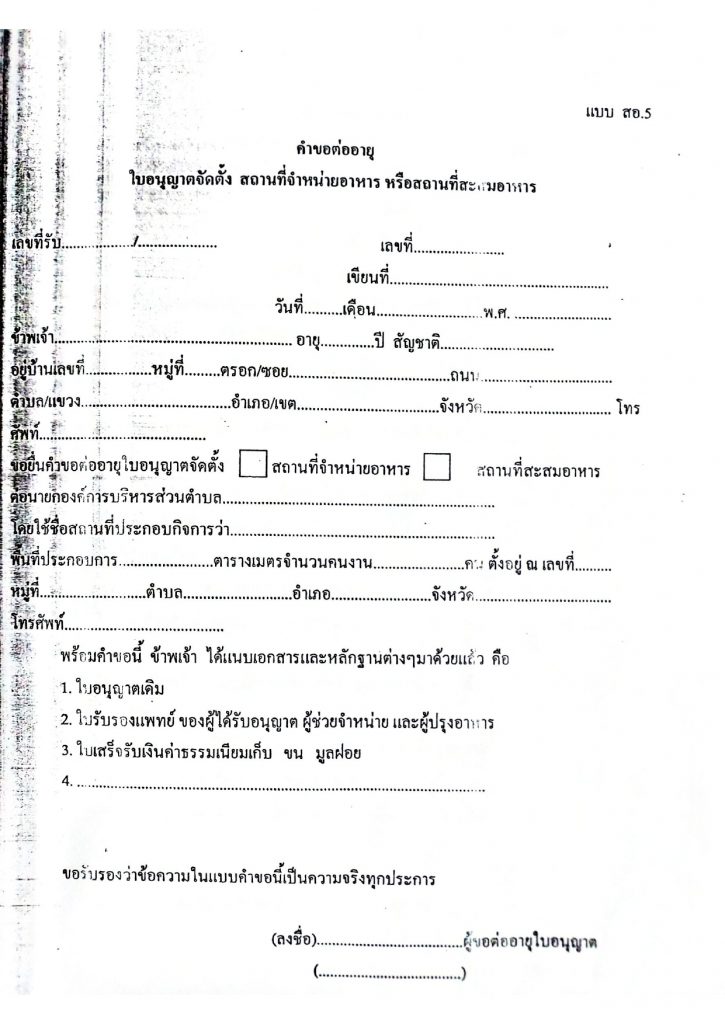 แบบ สอ.5
คำขอต่ออายุ
ใบอนุญาตจัดตั้ง สถานที่จำหน่ายอาหาร หรือสถานที่สะสมอาหาร
เลขที่รับ................../.................... เลขที่.......................
เขียนที่........................................................
วันที่..........เดือน...........................พ.ศ. .........................
ข้าพเจ้า............................................................. อายุ..............ปี สัญชาติ.............................
อยู่บ้านเลขที่.................หมู่ที่.........ตรอก/ซอย..........................................ถนน..................................
ตำบล/แขวง.......................................อำเภอ/เขต.....................................จังหวัด................................. โทร
ศัพท์...........................................
ขอยื่นคำขอต่ออายุใบอนุญาตจัดตั้ง ☐ สถานที่จำหน่ายอาหาร ☐ สถานที่สะสมอาหาร
ต่อนายกองค์การบริหารส่วนตำบล......................................................................
โดยใช้ชื่อสถานที่ประกอบกิจการว่า....................................................................
พื้นที่ประกอบการ........................ตารางเมตรจำนวนคนงาน........................คน ตั้งอยู่ ณ เลขที่..........
หมู่ที่...........................ตำบล............................อำเภอ..........................จังหวัด...................................
โทรศัพท์.........................................
พร้อมคำขอนี้ ข้าพเจ้า ได้แนบเอกสารและหลักฐานต่างๆมาด้วยแล้ว คือ
1. ใบอนุญาตเดิม
2. ใบรับรองแพทย์ ของผู้ได้รับอนุญาต ผู้ช่วยจำหน่าย และผู้ปรุงอาหาร
3. ใบเสร็จรับเงินค่าธรรมเนียมเก็บ ขน มูลฝอย
4. ..........................................................................................................
ขอรับรองว่าข้อความในแบบคำขอนี้เป็นความจริงทุกประการ
(ลงชื่อ)......................................ผู้ขอต่ออายุใบอนุญาต
(.....................................)